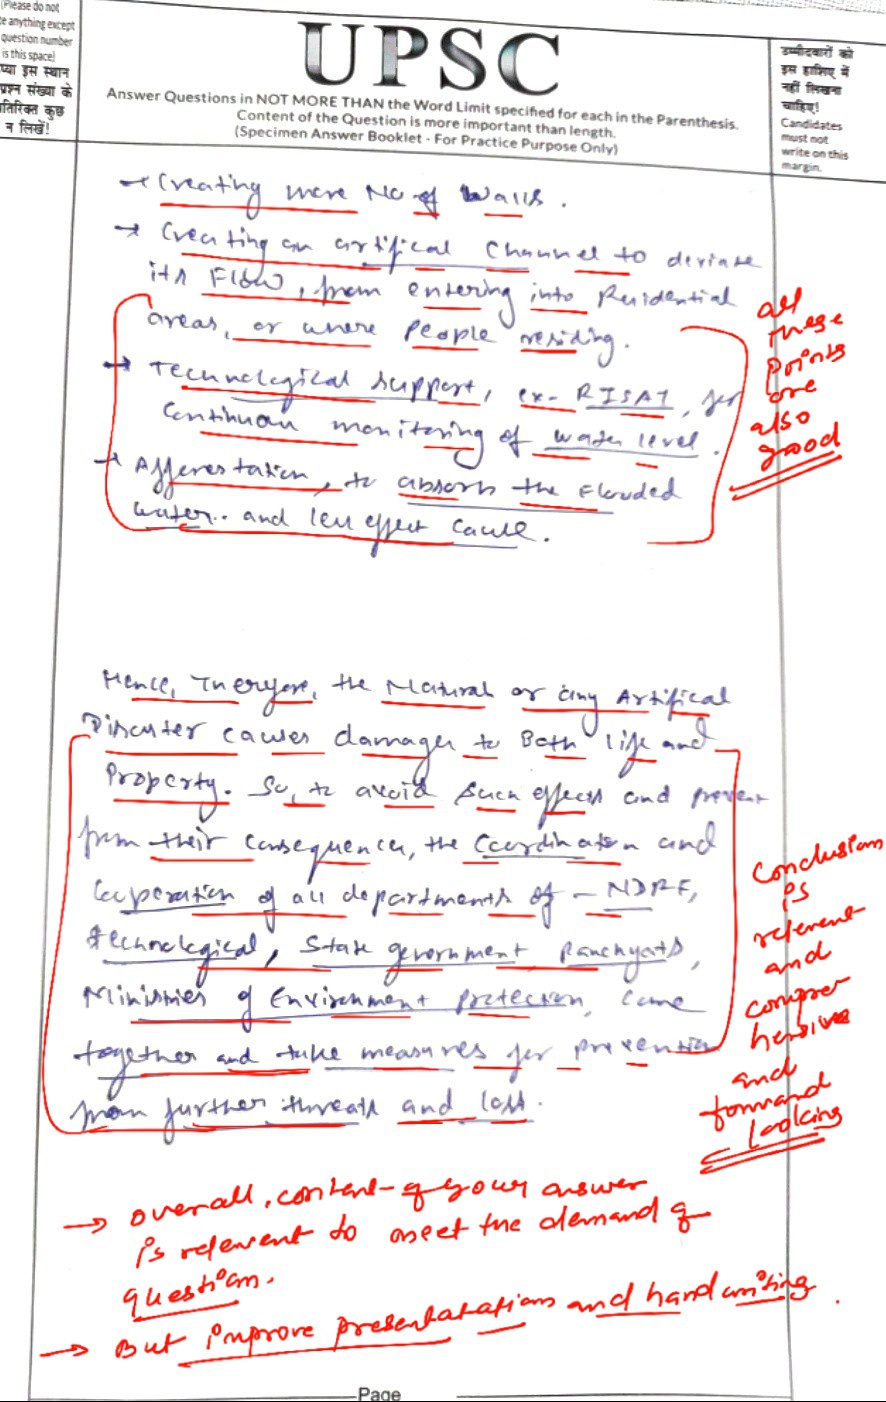 (Please do not
te anything except
question number
is this space)
प्या इस स्थान
प्रश्न संख्या के
तिरिक्त कुछ
न लिखें!
UPSC
Answer Questions in NOT MORE THAN the Word Limit specified for each in the Parenthesis.
Content of the Question is more important than length.
(Specimen Answer Booklet - For Practice Purpose Only)
उम्मीदवारों को
इस हाशिए में
नहीं लिखना
चाहिए!
Candidates
must not
write on this
margin.
→ Creating more No of Walls.
→ Creating an artifical Channel to deviate
its Flow, from entering into Residential
areas, or where People residing.
→ Technological support, ex- RISAT, for
Continuous monitoring of water level.
→ Afforestation, to absorb the Flooded
water.. and less effect cause.
all
these
points
are
also
good
Hence, Therefore, the Natural or any Artifical
Disaster causes damages to Both life and
Property. So, to avoid such effects and prevent
from their consequences, the Coordination and
Cooperation of all departments of - NDRF,
technological, State government, Panchyats,
Ministries of Environment protection, Come
together and take measures for prevention
from further threats and loss.
Conclusion
is
relevent
and
compre
hensive
and
forward
looking
→ Overall, content of your answer
is relevent to meet the demand of
question.
→ But improve presentatation and handwriting.
Page